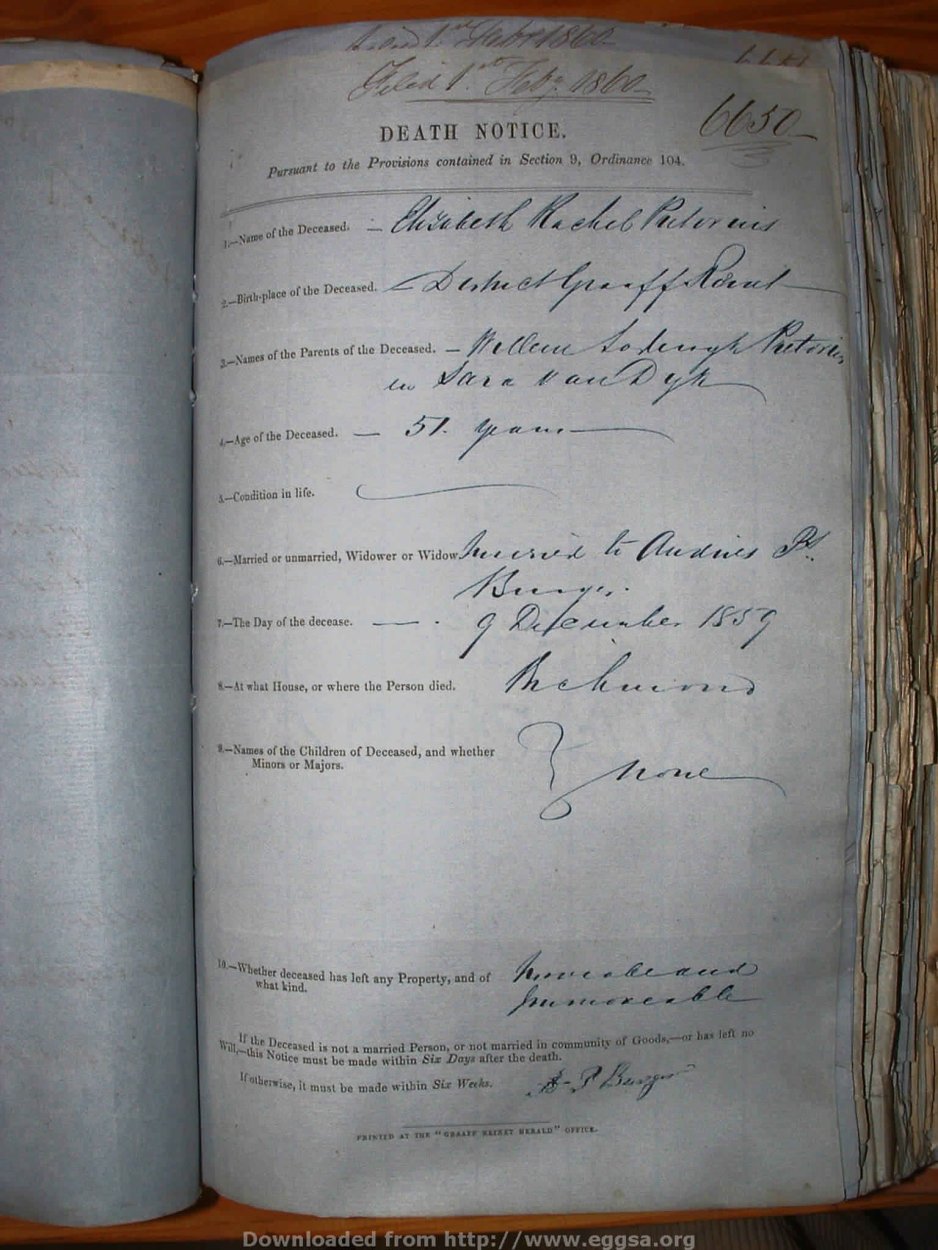 Filed 1st Feby. 1860
6650
DEATH NOTICE.
Pursuant to the Provisions contained in Section 9, Ordinance 104.
1.—Name of the Deceased. — Elizabeth Rachel Pretorius
2.—Birth-place of the Deceased. — District Graaff Reinet
3.—Names of the Parents of the Deceased. — Willem Lodewyk Pretorius
en Sara van Dyk
4.—Age of the Deceased. — 51 years
5.—Condition in life.
6.—Married or unmarried, Widower or Widow. Married to Andries Ps.
Burger.
7.—The Day of the decease. — 9 December 1859
8.—At what House, or where the Person died. Richmond
9.—Names of the Children of Deceased, and whether
Minors or Majors. } none
10.—Whether deceased has left any Property, and of Moveable and
what kind. Immoveable
If the Deceased is not a married Person, or not married in community of Goods,—or has left no
Will,—this Notice must be made within Six Days after the death.
If otherwise, it must be made within Six Weeks. A. P Burger
PRINTED AT THE "GRAAFF REINET HERALD" OFFICE.
Downloaded from http://www.eggsa.org